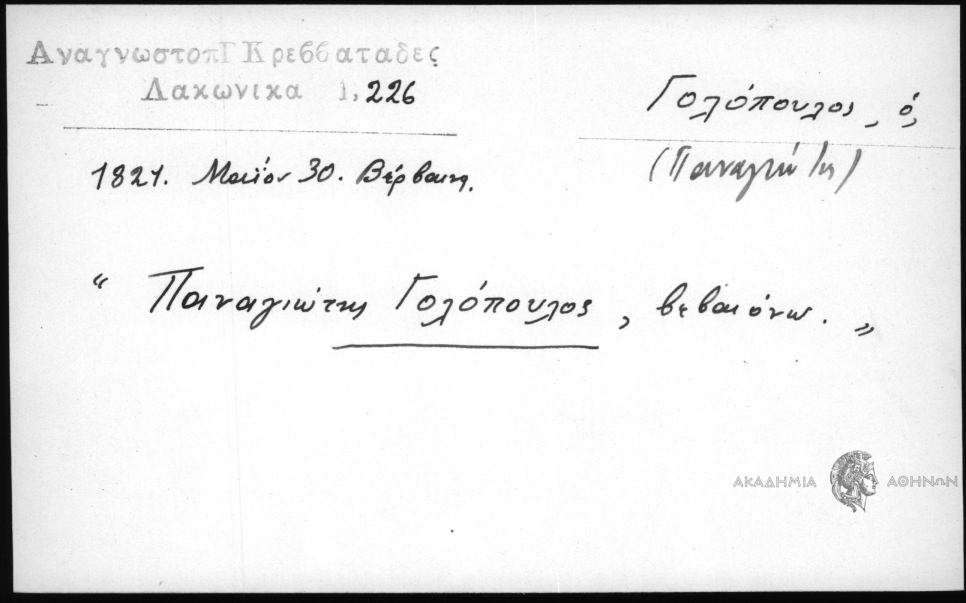 ΑναγνωστοπΓ Κρεββαταδες
Λακωνικα 1, 226
Γολόπουλος, ὁ,
(Παναγιώτης)
1821. Μαΐον 30. Βέρβαινα.
“ Παναγιώτης Γολόπουλος, βεβαιόνω. „
ΑΚΑΔΗΜΙΑ ΑΘΗΝΩΝ